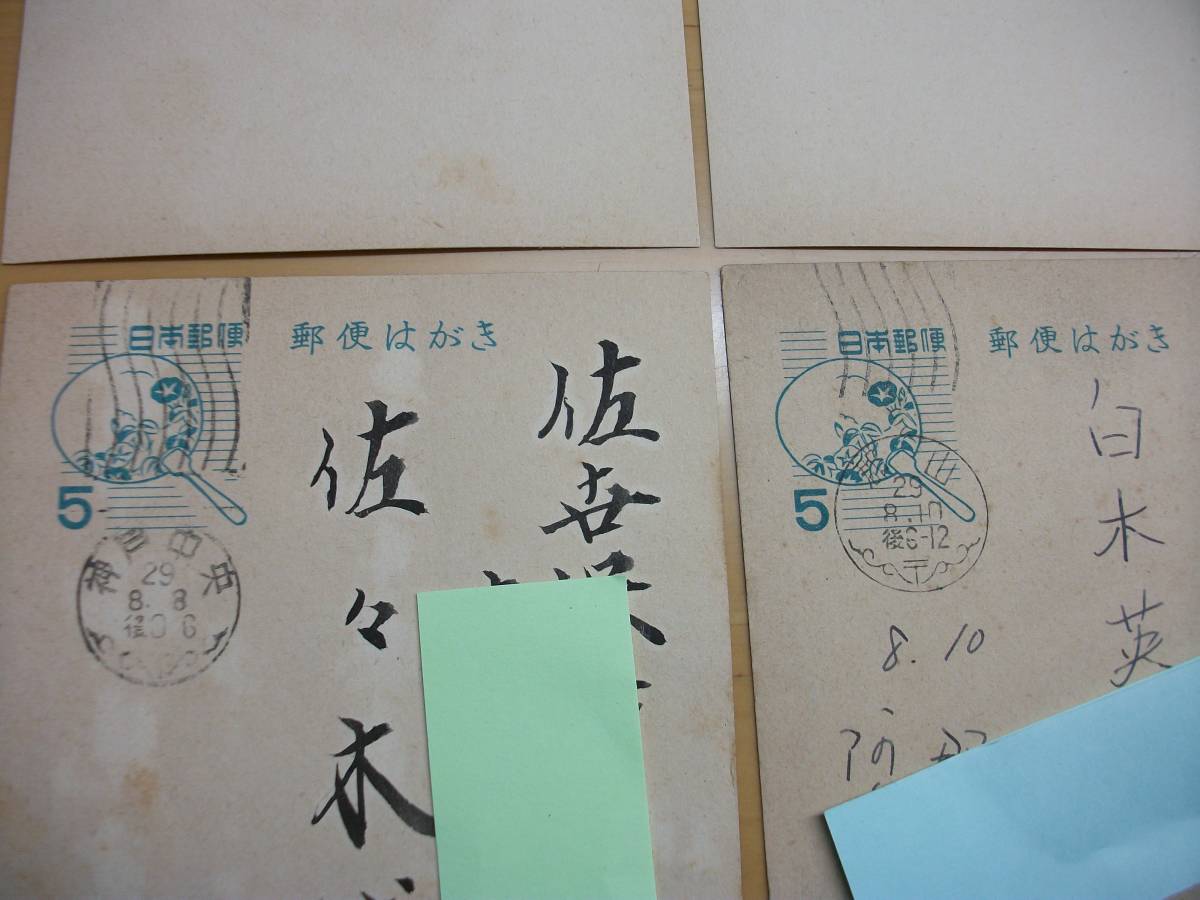 日本郵便 郵便はがき
5
中央
29
8. 8
佐世保
佐々木
日本郵便 郵便はがき
5
29
8.10
後6-12
〒
白木英
8.10